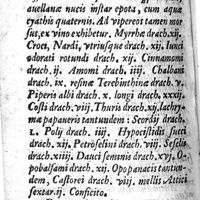 auellanæ nucis instar epota, cum aquæ
cyathis quaternis. Ad vipereos tamen mor
sus, ex vino exhibetur. Myrrhæ drach. xij.
Croci, Nardi, vtriusque drach. xij. Iunci
odorati rotundi drach. xij. Cinnamomi
drach. ij. Amomi drach. iiij. Chalbani
drach. ix. resinæ Terebinthinæ drach. v.
Piperis albi drach. x. longi drach. xxxij.
Costi drach. viij. Thuris drach. xij. lachry-
mæ papaueris tantundem: Scordij drach.
Polij drach. iiij. Hypocistidis succi
drach. xij. Petroselini drach. viij. Seselis
drach. xiiij. Dauci seminis drach. xvj. O-
pobalsami drach. xij. Opopanacis tantun-
dem, Castorei drach. viij. mellis Attici
sextar. ij. Conficito.